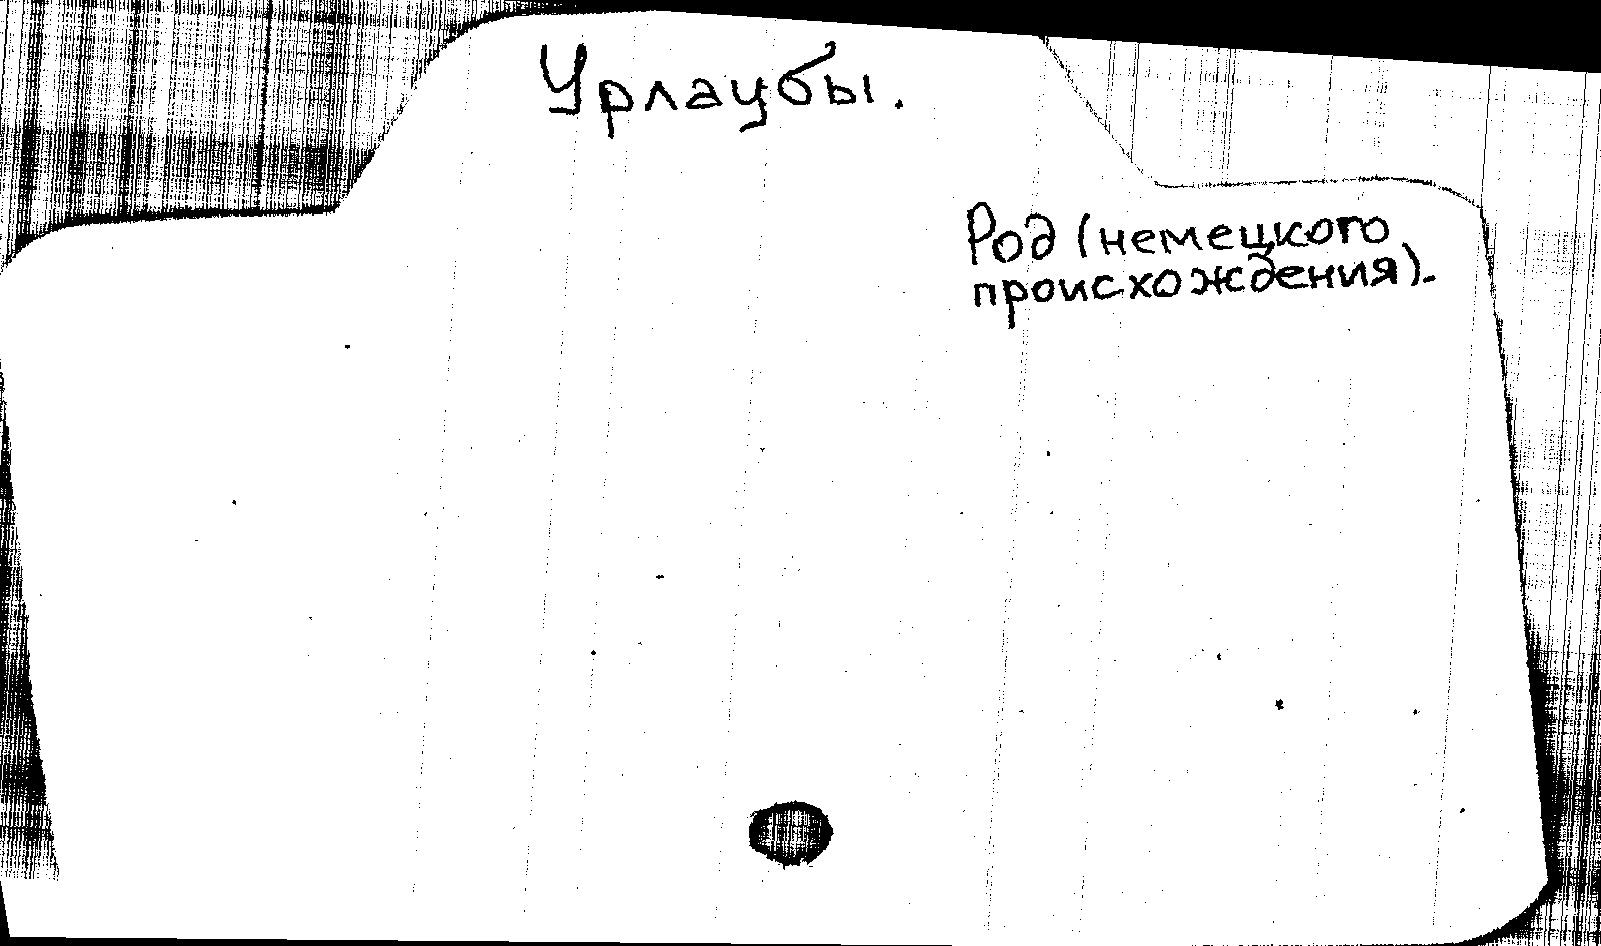 Урлаубы.
Род (немецкого
происхождения).